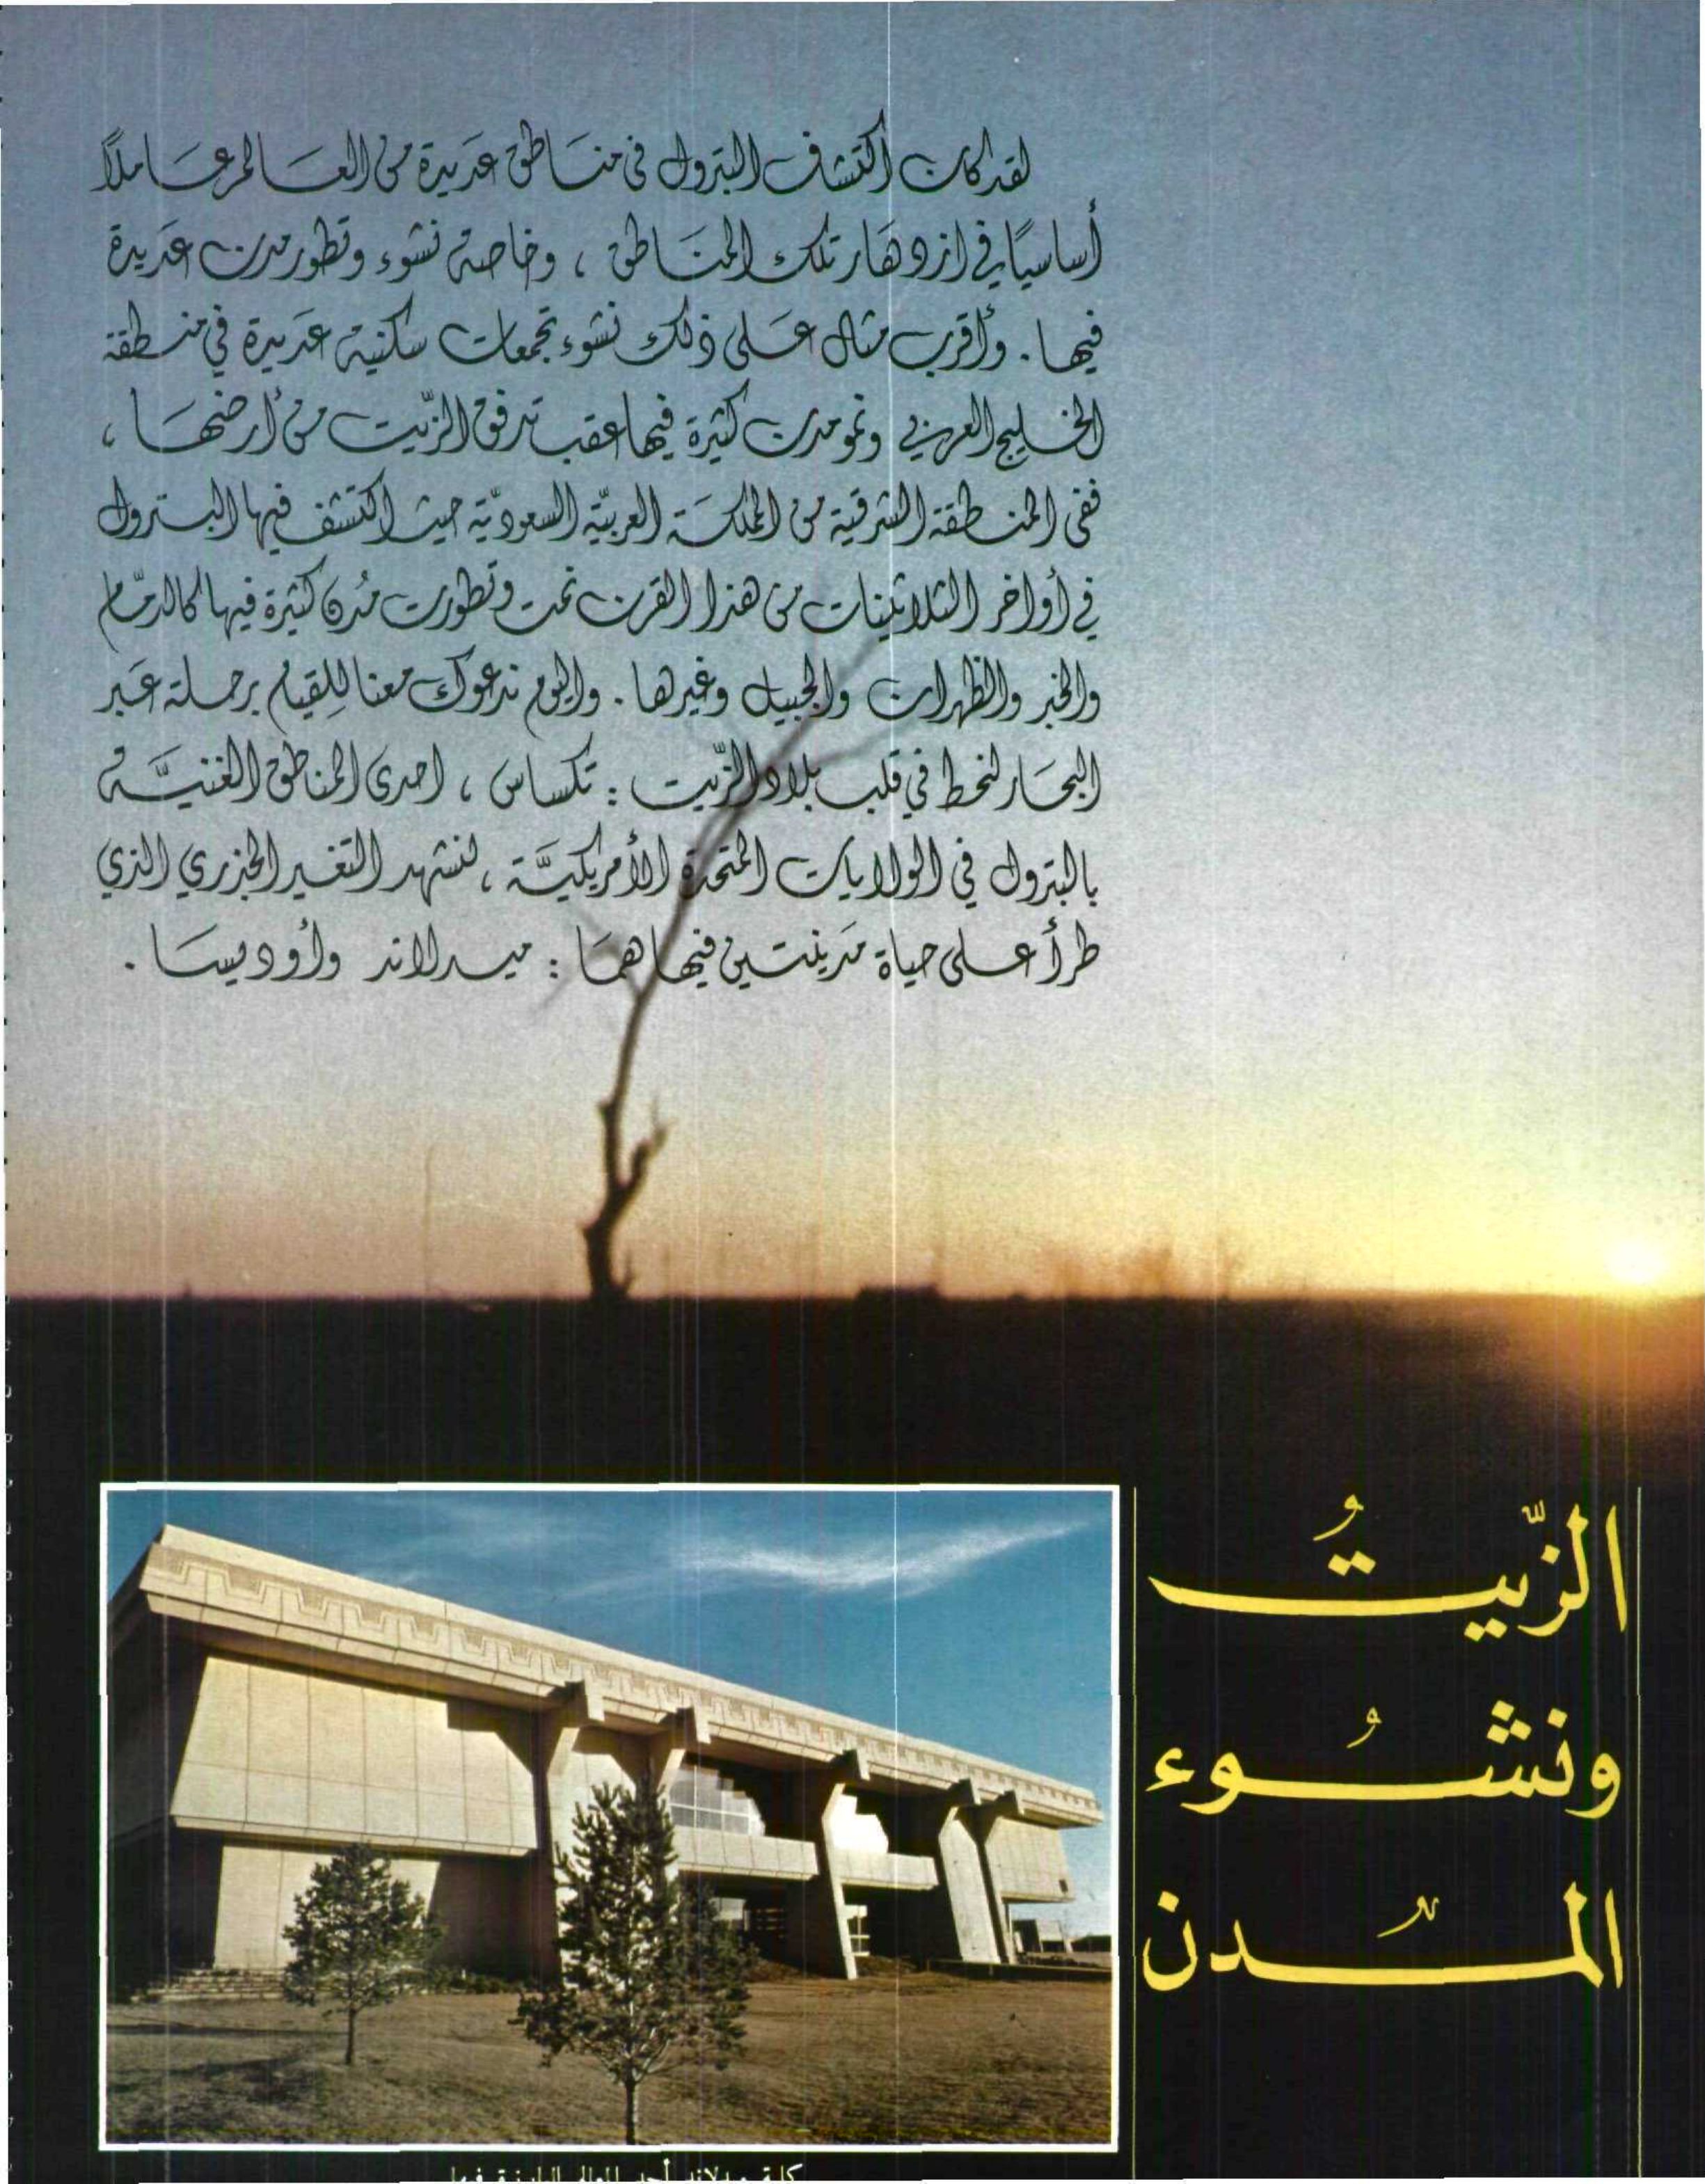 لقد كان اكتشاف البترول في مناطق عديدة من العالم عاملاً
أساسيًا في ازدهار تلك المناطق ، وخاصة نشوء وتطور مدن عديدة
فيها . وأقرب مثال على ذلك نشوء تجمعات سكنية عديدة في منطقة
الخليج العربي ونمو مدن كثيرة فيها عقب تدفق الزّيت من أرضها ،
ففي المنطقة الشرقية من المملكة العربيّة السعوديّة حيث اكتشف فيها البترول
في أواخر الثلاثينات من هذا القرن نمت وتطورت مُدن كثيرة فيها كالدمّام
والخبر والظهران والجبيل وغيرها . واليوم ندعوك معنا للقيام برحلة عَبر
البحار لنحط في قلب بلاد الزّيت : تكساس ، احدى المناطق الغنيَّة
بالبترول في الولايات المتحدة الأمريكيَّة ، لنشهد التغير الجذري الذي
طرأ على حياة مَدينتين فيها همَا : ميدلاند وأوديسا .
الزّيتُ
ونشُوء
المدن
كلية ميدلاند أحد المعالم البارزة فيها